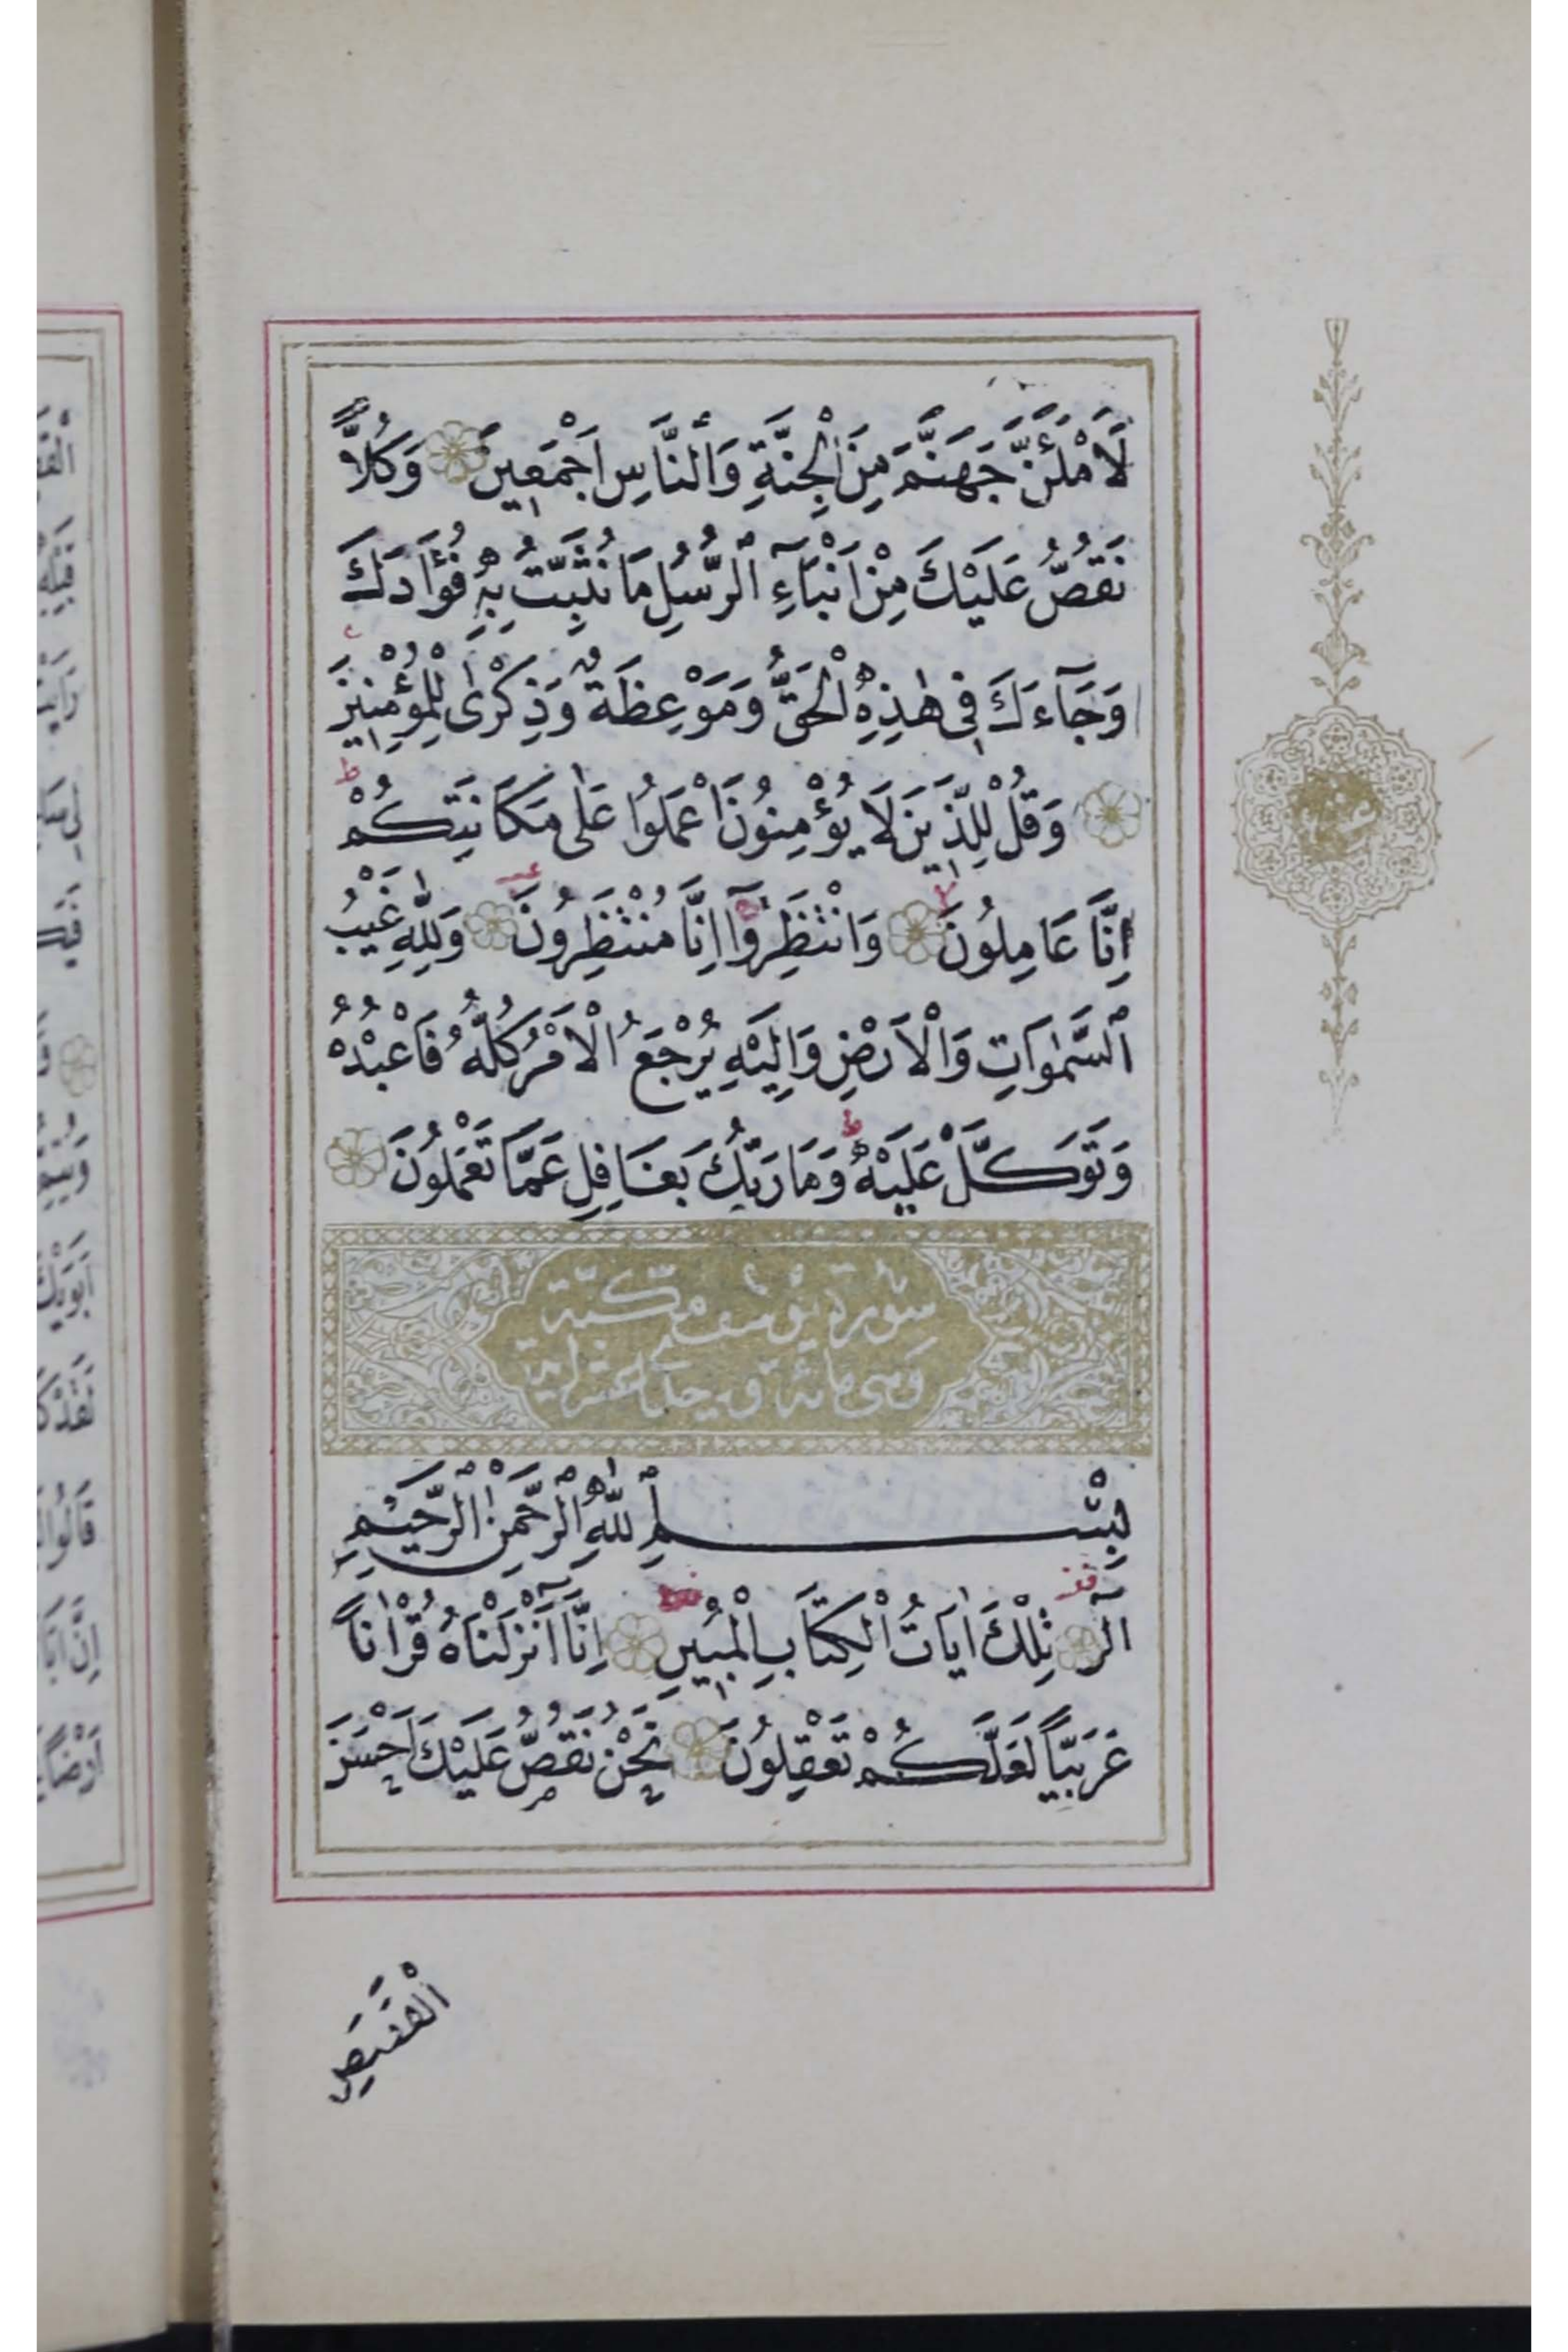 لَأَمْلَئَنَّ جَهَنَّمَ مِنَ الْجِنَّةِ وَالنَّاسِ اَجْمَعِينَ وَكُلاًّ
نَقُصُّ عَلَيْكَ مِنْ اَنْبَآءِ الرُّسُلِ مَا نُثَبِّتُ بِهٖ فُؤَادَكَ
وَجَآءَكَ فِى هٰذِهِ الْحَقُّ وَمَوْعِظَةٌ وَذِكْرٰى لِلْمُؤْمِنِينَ
وَقُلْ لِلَّذِينَ لَا يُؤْمِنُونَ اعْمَلُوا عَلٰى مَكَانَتِكُمْ
اِنَّا عَامِلُونَ وَانْتَظِرُوٓا اِنَّا مُنْتَظِرُونَ وَلِلّٰهِ غَيْبُ
السَّمٰوَاتِ وَالْاَرْضِ وَاِلَيْهِ يُرْجَعُ الْاَمْرُ كُلُّهُ فَاعْبُدْهُ
وَتَوَكَّلْ عَلَيْهِ وَمَا رَبُّكَ بِغَافِلٍ عَمَّا تَعْمَلُونَ
سورة يوسف مكية
وهى مائة و احدى عشر اية
بِسْمِ اللّٰهِ الرَّحْمٰنِ الرَّحِيمِ
الٓرٰ تِلْكَ اٰيَاتُ الْكِتَابِ الْمُبِينِ اِنَّآ اَنْزَلْنَاهُ قُرْاٰناً
عَرَبِيًّا لَعَلَّكُمْ تَعْقِلُونَ نَحْنُ نَقُصُّ عَلَيْكَ اَحْسَنَ
الْقَصَصِ